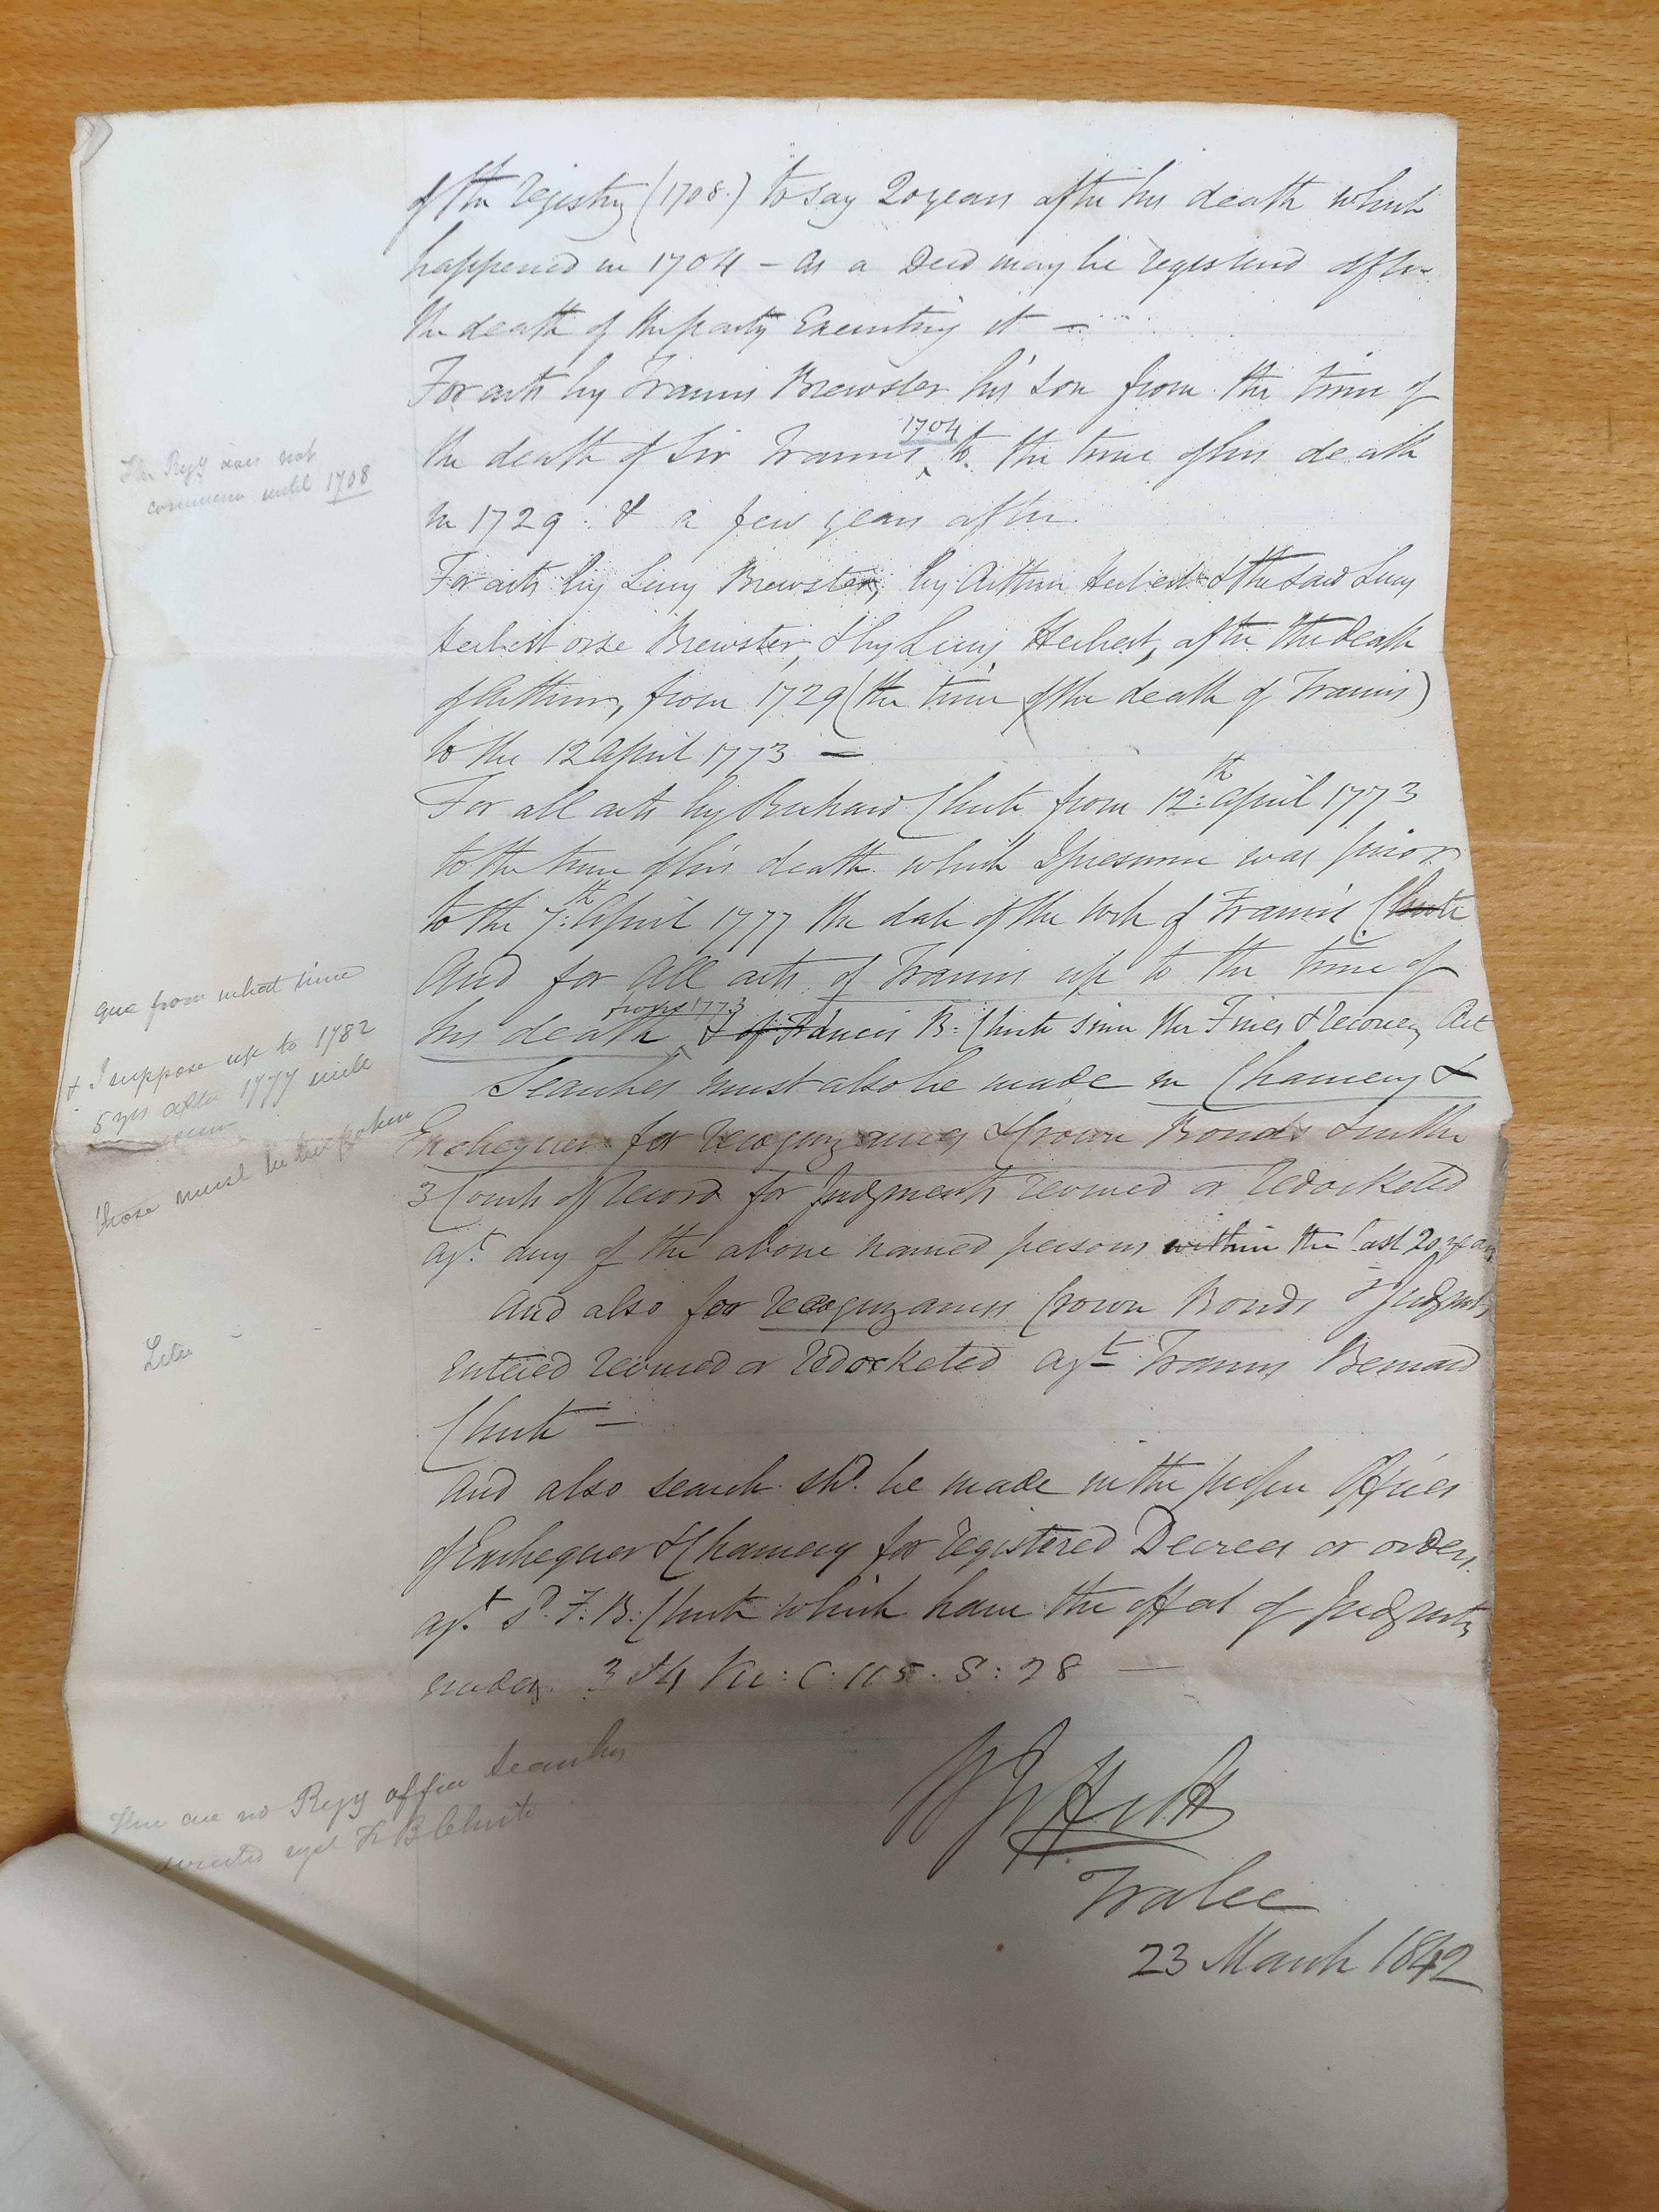 of the Registry (1708.) to say 20 years after his death which
happened in 1704 - as a Deed may be registered after
the death of the party Executing it -
For acts by Francis Brewster his son from the time of
The Regy does not
commence until 1708
the death of Sir Francis 1704 to the time of his death
in 1729. & a few years after.
For acts by Lucy Brewster, by Arthur Herbert & the said Lucy
Herbert orse Brewster, & by Lucy Herbert, after the death
of Arthur, from 1729 (the time of the death of Francis)
to the 12 April 1773 -
For all acts by Richard Chute from 12:th April 1773
to the time of his death which I presume was prior
to the 7:th April 1777 the date of the Will of Francis Chute
And for all acts of Francis up to the time of
que from what time
his death from 1773 & of Francis B: Chute since the Fines & Recovery Act
+ I suppose up to 1782
5 yrs after 1777 will
Searches must also be made in Chancery &
those must be bespoken
Exchequer for recognizances & Crown Bonds & in the
3 Courts of Record for Judgments revived or redocketed
agt. any of the above named persons within the last 20 years
And also for recognizances Crown Bonds or Judgmts
Entered revived or redocketed agt Francis Bernard
Chute -
And also search shd. be made in the proper Offices
of Exchequer & Chancery for registered Decrees or orders
agt. sd. F. B. Chute which have the effect of Judgmts
under 3 & 4 Vic: C. 115. S: 28 -
There are no Regy office Searches
directed agst F B Chute
Tralee
23 March 1842